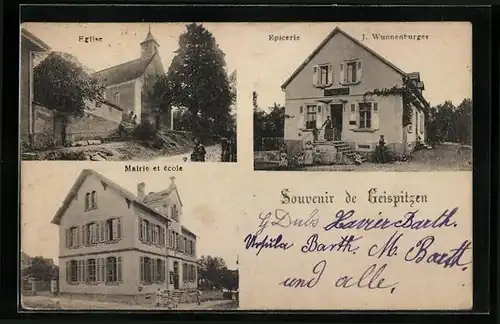 Eglise
Epicerie J. Wunnenburger
Mairie et école
Souvenir de Geispitzen
G Dubs Xavier Barth.
Ursula Barth. M. Barth.
und alle,